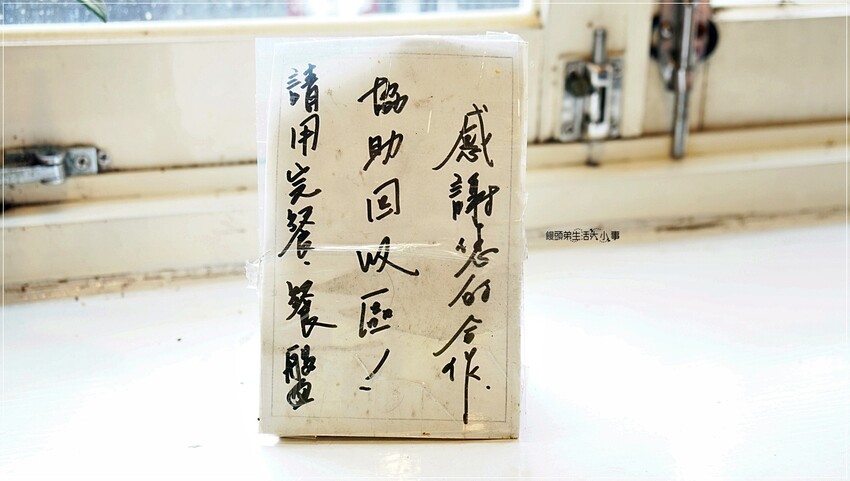 請用完餐、餐盤
協助回收區！
感謝您的合作.
饅頭弟生活大小事